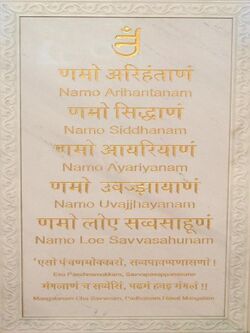 णमो अरिहंताणं
Namo Arihantanam
णमो सिद्धाणं
Namo Siddhanam
णमो आयरियाणं
Namo Ayariyanam
णमो उवज्झायाणं
Namo Uvajjhayanam
णमो लोए सव्वसाहूणं
Namo Loe Savvasahunam
'एसो पंचणमोक्कारो, सव्वपावप्पणासणो।
Eso Panchnamokkaro, Savvapavappanasano
मंगलाणं च सव्वेसिं, पढमं हवइ मंगलं।।
Mangalanam Cha Savvesim, Padhamam Havai Mangalam